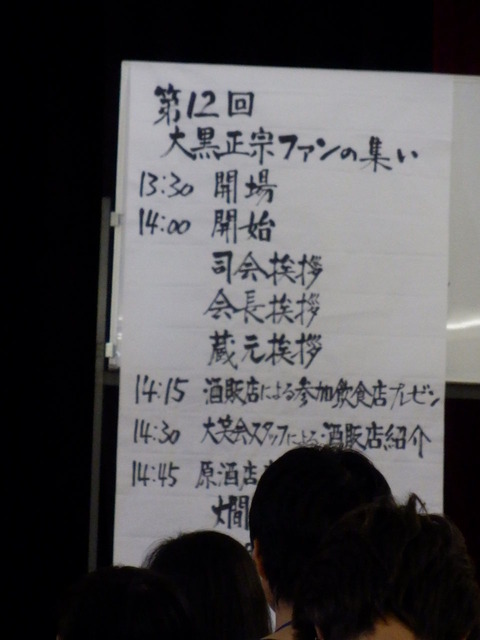 第12回
大黒正宗ファンの集い
13:30 開場
14:00 開始
司会挨拶
会長挨拶
蔵元挨拶
14:15 酒販店による参加飲食店プレゼン
14:30 大笑会スタッフによる酒販店紹介
14:45 原酒店
燗